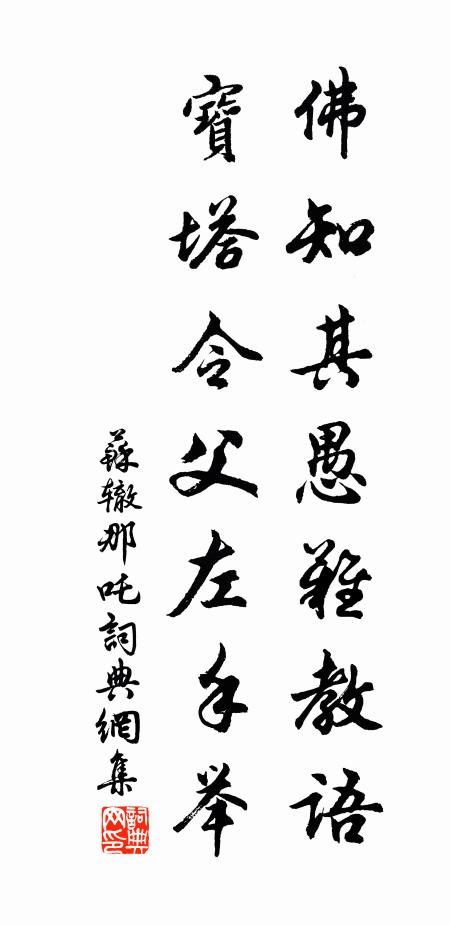 佛知其愚難教語
寶塔令父左手举
蘇辙那吒詞典網集
詞典网印